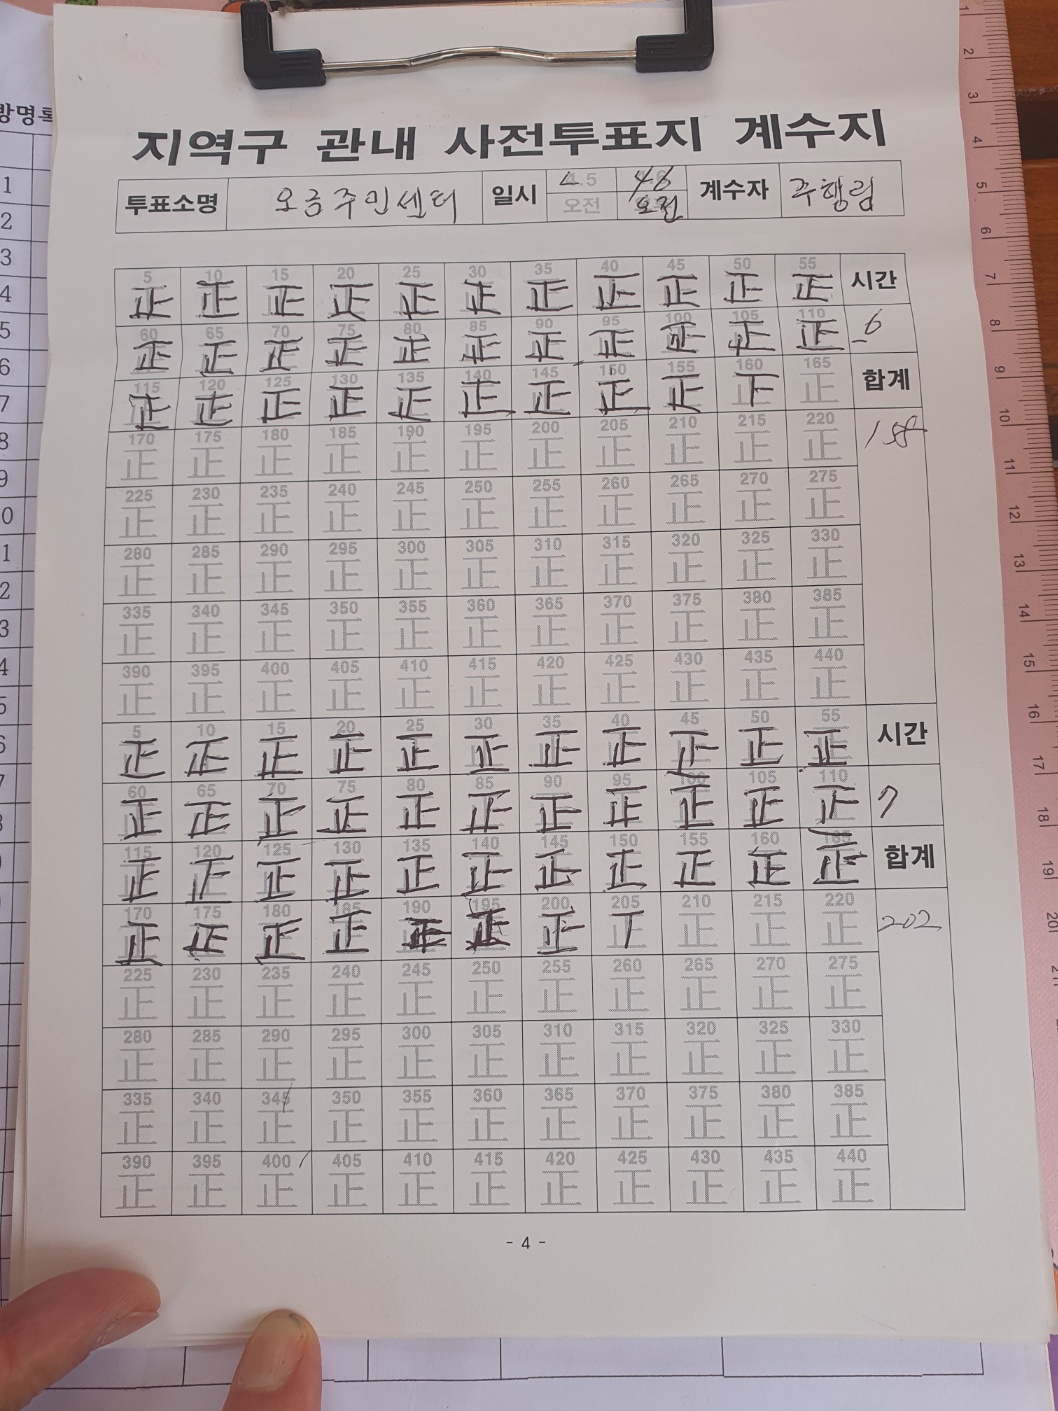 지역구 관내 사전투표지 계수지
투표소명 오금주민센터 일시 4.5 오전 4.6 오전 계수자 주행림
5 10 15 20 25 30 35 40 45 50 55 시간
正 正 正 正 正 正 正 正 正 正 正
60 65 70 75 80 85 90 95 100 105 110 6
正 正 正 正 正 正 正 正 正 正 正
115 120 125 130 135 140 145 150 155 160 165 합계
正 正 正 正 正 正 正 正 正 正 正
170 175 180 185 190 195 200 205 210 215 220 158
正 正 正 正 正 正 正 正 正 正 正
225 230 235 240 245 250 255 260 265 270 275
正 正 正 正 正 正 正 正 正 正 正
280 285 290 295 300 305 310 315 320 325 330
正 正 正 正 正 正 正 正 正 正 正
335 340 345 350 355 360 365 370 375 380 385
正 正 正 正 正 正 正 正 正 正 正
390 395 400 405 410 415 420 425 430 435 440
正 正 正 正 正 正 正 正 正 正 正
5 10 15 20 25 30 35 40 45 50 55 시간
正 正 正 正 正 正 正 正 正 正 正
60 65 70 75 80 85 90 95 100 105 110 7
正 正 正 正 正 正 正 正 正 正 正
115 120 125 130 135 140 145 150 155 160 165 합계
正 正 正 正 正 正 正 正 正 正 正
170 175 180 185 190 195 200 205 210 215 220 202
正 正 正 正 正 正 正 正 正 正 正
225 230 235 240 245 250 255 260 265 270 275
正 正 正 正 正 正 正 正 正 正 正
280 285 290 295 300 305 310 315 320 325 330
正 正 正 正 正 正 正 正 正 正 正
335 340 345 350 355 360 365 370 375 380 385
正 正 正 正 正 正 正 正 正 正 正
390 395 400 405 410 415 420 425 430 435 440
正 正 正 正 正 正 正 正 正 正 正
- 4 -